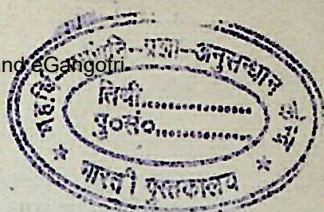 and eGangotri
महर्षि
प्रज्ञा-अनुसन्धान
तिथी..............
पु०सं०..............
* भारती पुस्तकालय *